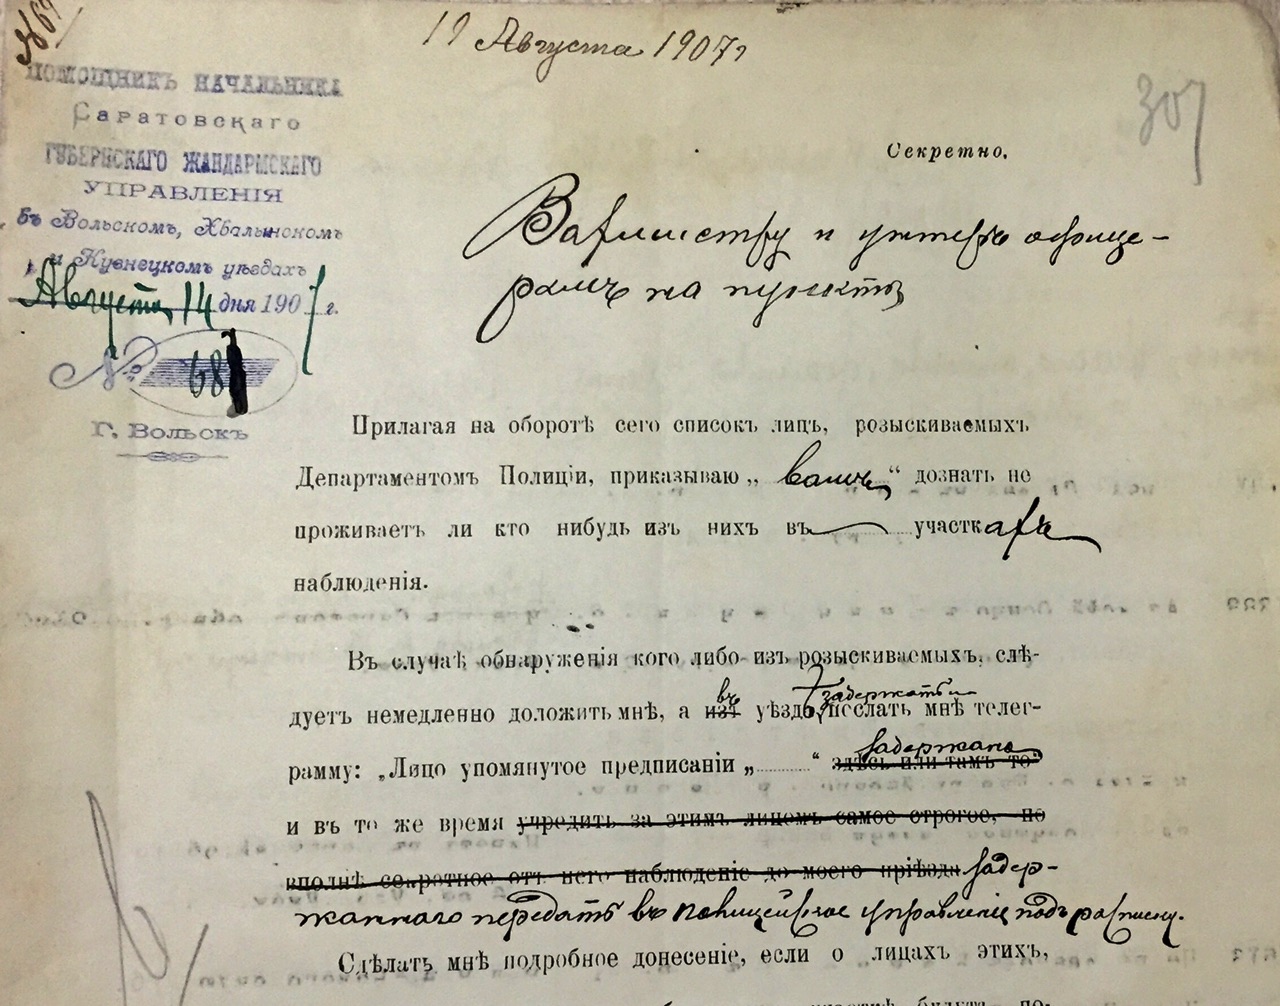 19 Августа 1907 г
307
ПОМОЩНИКЪ НАЧАЛЬНИКА
Саратовскаго
ГУБЕРНСКАГО ЖАНДАРМСКАГО
УПРАВЛЕНІЯ
въ Вольскомъ, Хвалынскомъ
и Кузнецкомъ уѣздахъ
Августа 14 дня 1907 г.
№ 68
Г. Вольскъ
Секретно.
Вахмистру и унтеръ офице-
рамъ на пунктѣ
Прилагая на оборотѣ сего списокъ лицъ, розыскиваемыхъ
Департаментомъ Полиціи, приказываю „ вамъ “ дознать не
проживаетъ ли кто нибудь изъ нихъ въ участкахъ
наблюденія.
Въ случаѣ обнаруженія кого либо изъ розыскиваемыхъ, слѣ-
въ задержать и
дуетъ немедленно доложить мнѣ, а изъ уѣзда, послать мнѣ телег-
задержано
рамму: „Лицо упомянутое предписаніи „.........“ здѣсь или тамъ то“
и въ то же время учредить за этимъ лицомъ самое строгое, но
вполнѣ секретное отъ него наблюденіе до моего пріѣзда задер-
жаннаго передать въ полицейское управленіе подъ расписку.
Сдѣлать мнѣ подробное донесеніе, если о лицахъ этихъ,